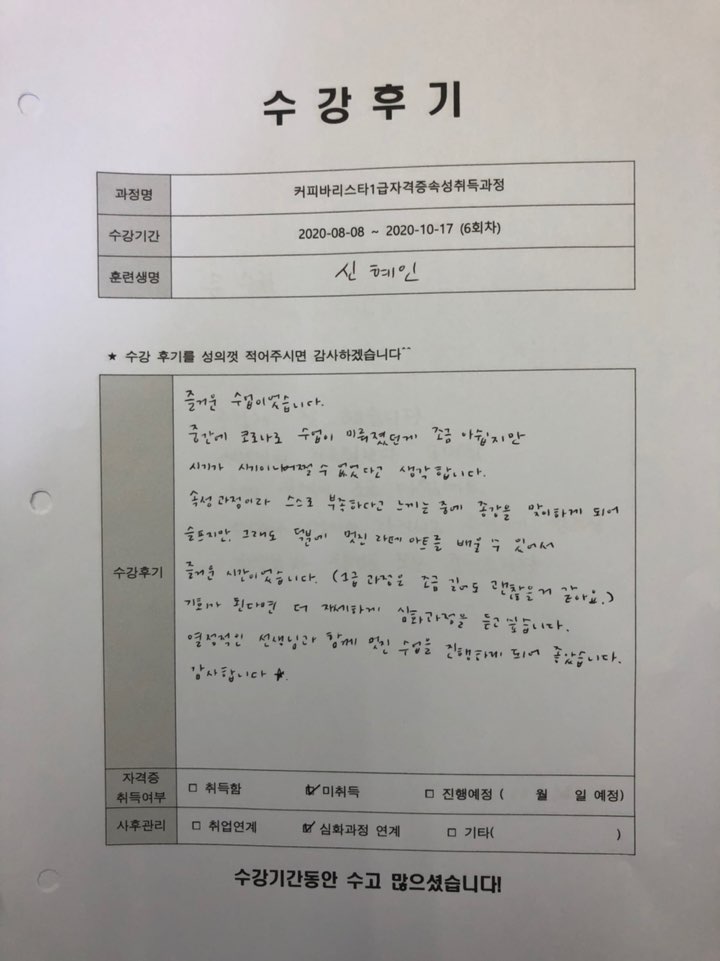 수강후기
과정명 커피바리스타1급자격증속성취득과정
수강기간 2020-08-08 ~ 2020-10-17 (6회차)
훈련생명 신혜인
★ 수강 후기를 성의껏 적어주시면 감사하겠습니다^^
수강후기
즐거운 수업이었습니다.
중간에 코로나로 수업이 미뤄졌던게 조금 아쉽지만
시기가 시기이니 어쩔 수 없었다고 생각합니다.
속성과정이라 스스로 부족하다고 느끼는 중에 종강을 맞이하게 되어
슬프지만, 그래도 덕분에 멋진 라떼아트를 배울 수 있어서
즐거운 시간이었습니다. (1급 과정은 조금 길어도 괜찮을거 같아요.)
기회가 된다면 더 자세하게 심화과정을 듣고 싶습니다.
열정적인 선생님과 함께 멋진 수업을 진행하게 되어 좋았습니다.
감사합니다 ★.
자격증 취득여부 □ 취득함 ☑ 미취득 □ 진행예정 ( 월 일 예정)
사후관리 □ 취업연계 ☑ 심화과정 연계 □ 기타( )
수강기간동안 수고 많으셨습니다!